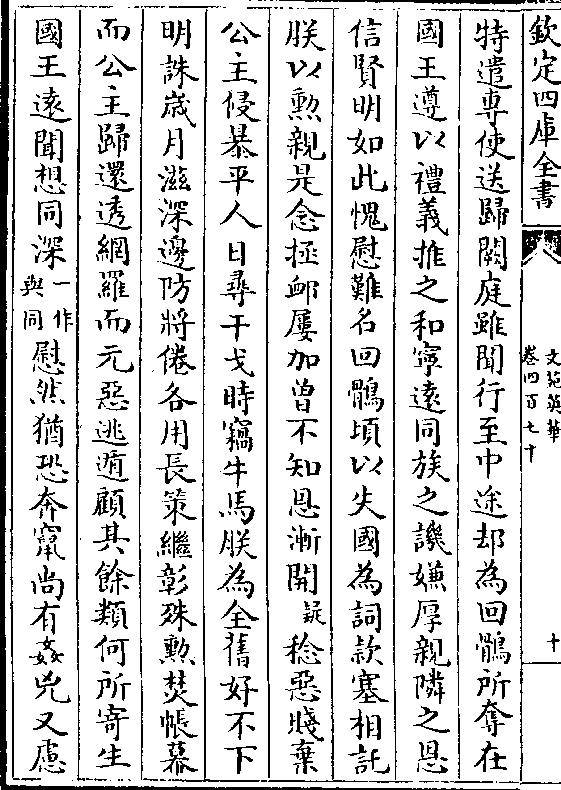 欽定四庫全書
文苑英華
卷四百七十
十
特遣專使送歸闕庭雖聞行至中途却為回鶻所奪在
國王遵以禮義推之和寧遠同族之譏嫌厚親隣之恩
信賢明如此愧慰難名回鶻頃以失國為詞款塞相託
朕以勲親是念拯卹屢加曾不知恩漸開疑稔惡賤棄
公主侵暴平人日尋干戈時竊牛馬朕為全舊好不下
明誅歳月滋深邊防將倦各用長策繼彰殊勲焚帳幕
而公主歸還透網羅而元惡逃遁顧其餘類何所寄生
國王遠聞想同深一作與同慰然猶恐奔竄尚有姦兇又慮